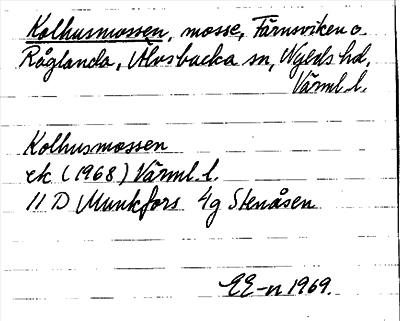 Kolhusmossen, mosse, Färnsviken o.
Råglanda, Älvsbacka sn, Nyeds hd,
Värml. l.
Kolhusmossen
ek (1968) Värml. l.
11 D Munkfors 4g Stenåsen
EE-n 1969.